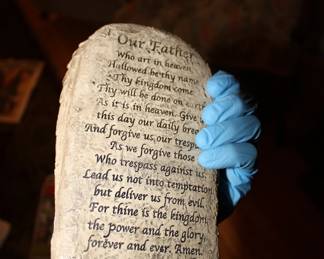 Our Father
Who art in heaven,
Hallowed be thy name
Thy kingdom come
Thy will be done on earth
As it is in heaven. Give
this day our daily bread
And forgive us our
As we forgive those
Who trespass against us.
Lead us not into temptation
but deliver us from evil.
For thine is the kingdom,
the power and the glory,
forever and ever. Amen.